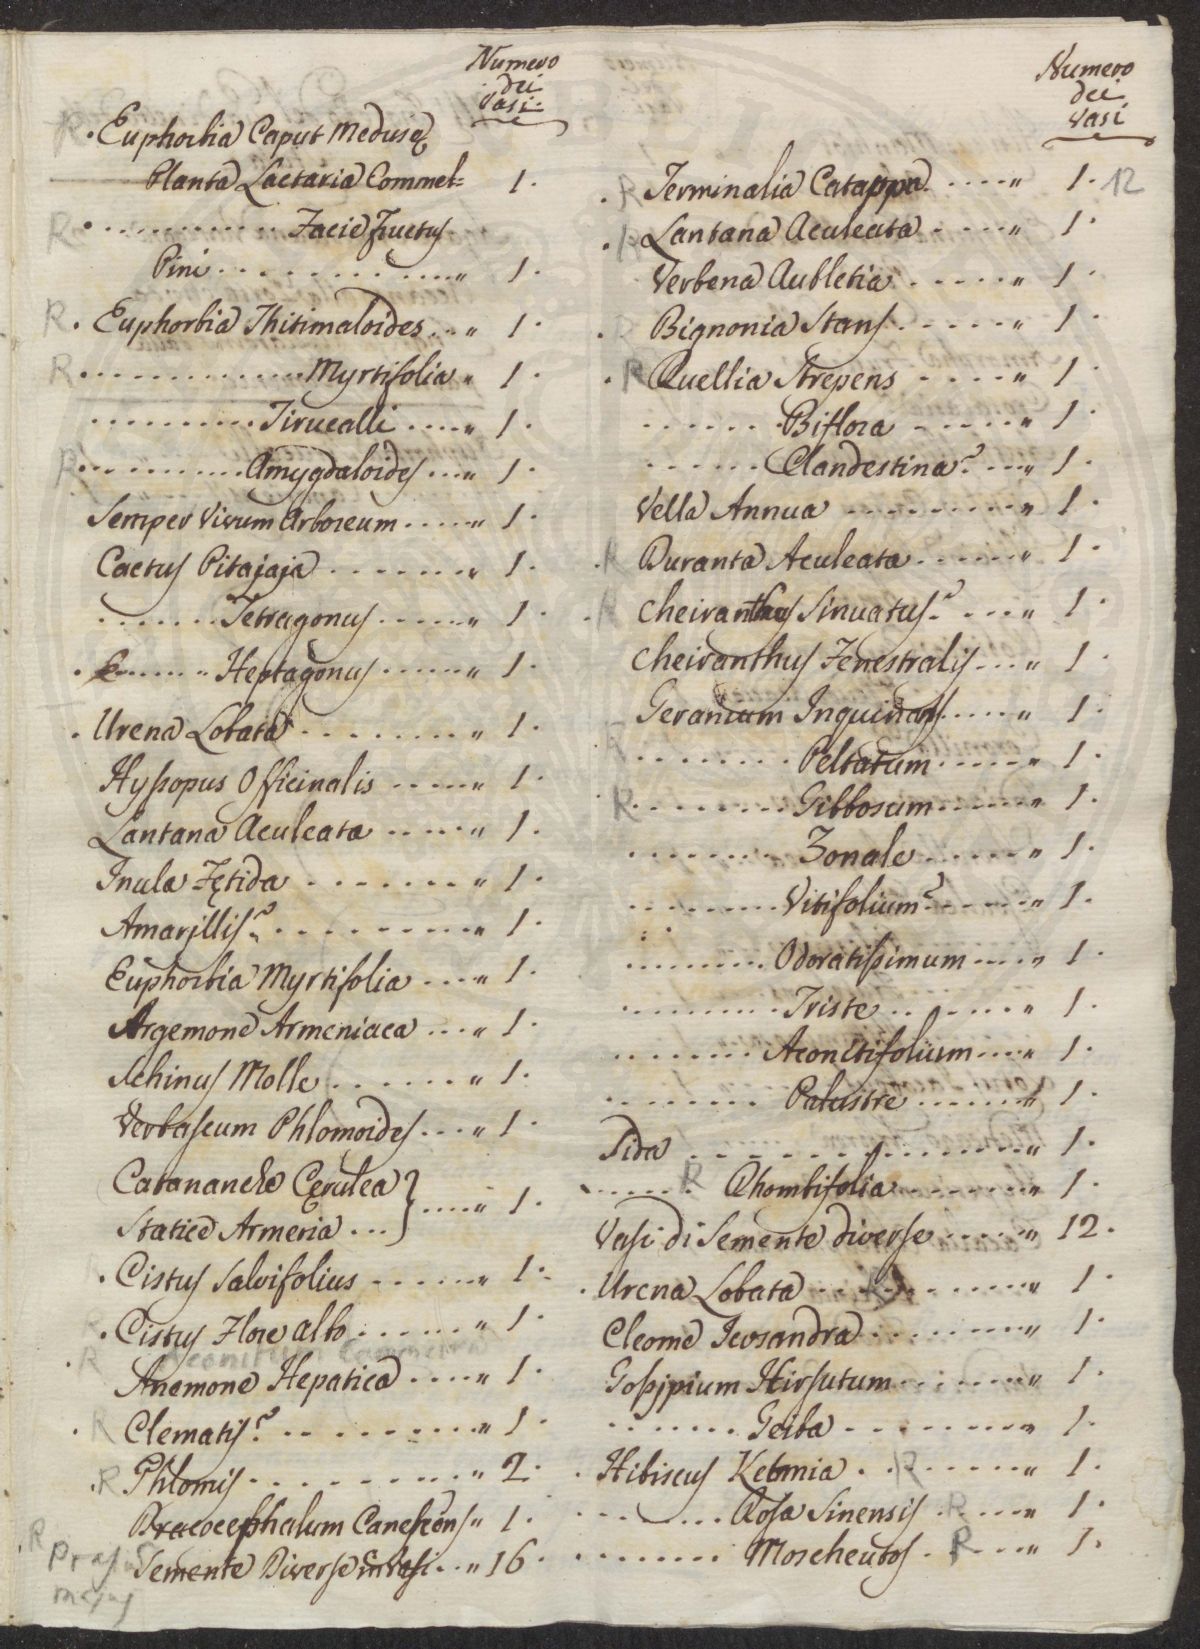 Numero
dei
Vasi.
. Euphorbia Caput Medusę
Planta Lactaria Commel= 1.
R . . . . . . . . . . Facie fructus
Pini . . . . . . . . . . " 1.
R . Euphorbia Thitimaloides . . " 1.
R . . . . . . . . . . . Myrtifolia " 1.
. . . . . . . . . . Tirucalli . . . . " 1.
R . . . . . . . . . . Amygdaloides . . " 1.
Semper Vivum Arboreum . . . . " 1.
Cactus Pitajaja . . . . . . . " 1.
. . . . . . . Tetragonus . . . . . " 1.
. . . . . . " Heptagonus . . . . . " 1.
. Urena Lobata . . . . . . . . " 1.
Hyssopus Officinalis . . . . . " 1.
Lantana Aculeata . . . . . " 1.
Inula Fętida . . . . . . . " 1.
Amarjllis? . . . . . . . . . " 1.
Euphorbia Myrtifolia . . . " 1.
Argemone Armeniaca . . . " 1.
Schinus Molle . . . . . . " 1.
Verbascum Phlomoides . . . " 1.
Catananche Cęrulea }
Statice Armeria . . . } . . . . " 1.
. Cistus Salvifolius . . . . . . " 1.
. Cistus Flore albo . . . . . . " 1.
R Aconitum Cammarum
Anemone Hepatica . . . . " 1.
. R Clematis? . . . . . . . . . " 1.
. R Phlomis . . . . . . . . . " 2.
Dracocephalum Canescens " 1.
R Prasium
majus
Semente Diverse in Vasi . . " 16.
Numero
dei
Vasi
. R Terminalia Catappa . . . . . " 1. 12
. R Lantana Aculeata . . . . " 1.
Verbena Aubletia . . . . . " 1.
. R Bignonia Stans . . . . . " 1.
. R Ruellia Strepens . . . . " 1.
. . . . . . . Biflora . . . . . " 1.
. . . . . . Clandestina? . . . " 1.
Vella Annua . . . . . . . . . " 1.
R Duranta Aculeata . . . . . . " 1.
. R Cheiranthus Sinuatus? . . . " 1.
Cheiranthus Fenestralis . . . " 1.
Geranium Inquinans . . . . " 1.
R . . . . . . . . Peltatum . . . . . " 1.
R . . . . . . . . Gibbosum . . . . . " 1.
. . . . . . . Zonale . . . . . . " 1.
. . . . . . . . Vitifolium? . . . . . " 1.
. . . . . . . . Odoratissimum . . . . " 1.
. . . . . . . . Triste . . . . . . . " 1.
. . . . . . . Aconitifolium . . . . " 1.
. . . . . . . . Palustre . . . . . . " 1.
Sida . . . . . . . . . . . . . . " 1.
. . . . . . R Rhombifolia . . . . . . . " 1.
Vasi di Semente diverse . . . . . " 12.
. Urena Lobata . . . R . . . . . . " 1.
Cleome Icosandra . . . . . . . . " 1.
Gossjpium Hirsutum . . . . . . . " 1.
. . . . . . Ceiba . . . . . . . . . " 1.
. Hibiscus Ketmia . . R . . . . . " 1.
. . . . . . . Rosa Sinensis . R . . . " 1.
. . . . . . . . Moscheutos . R . . . " 1.